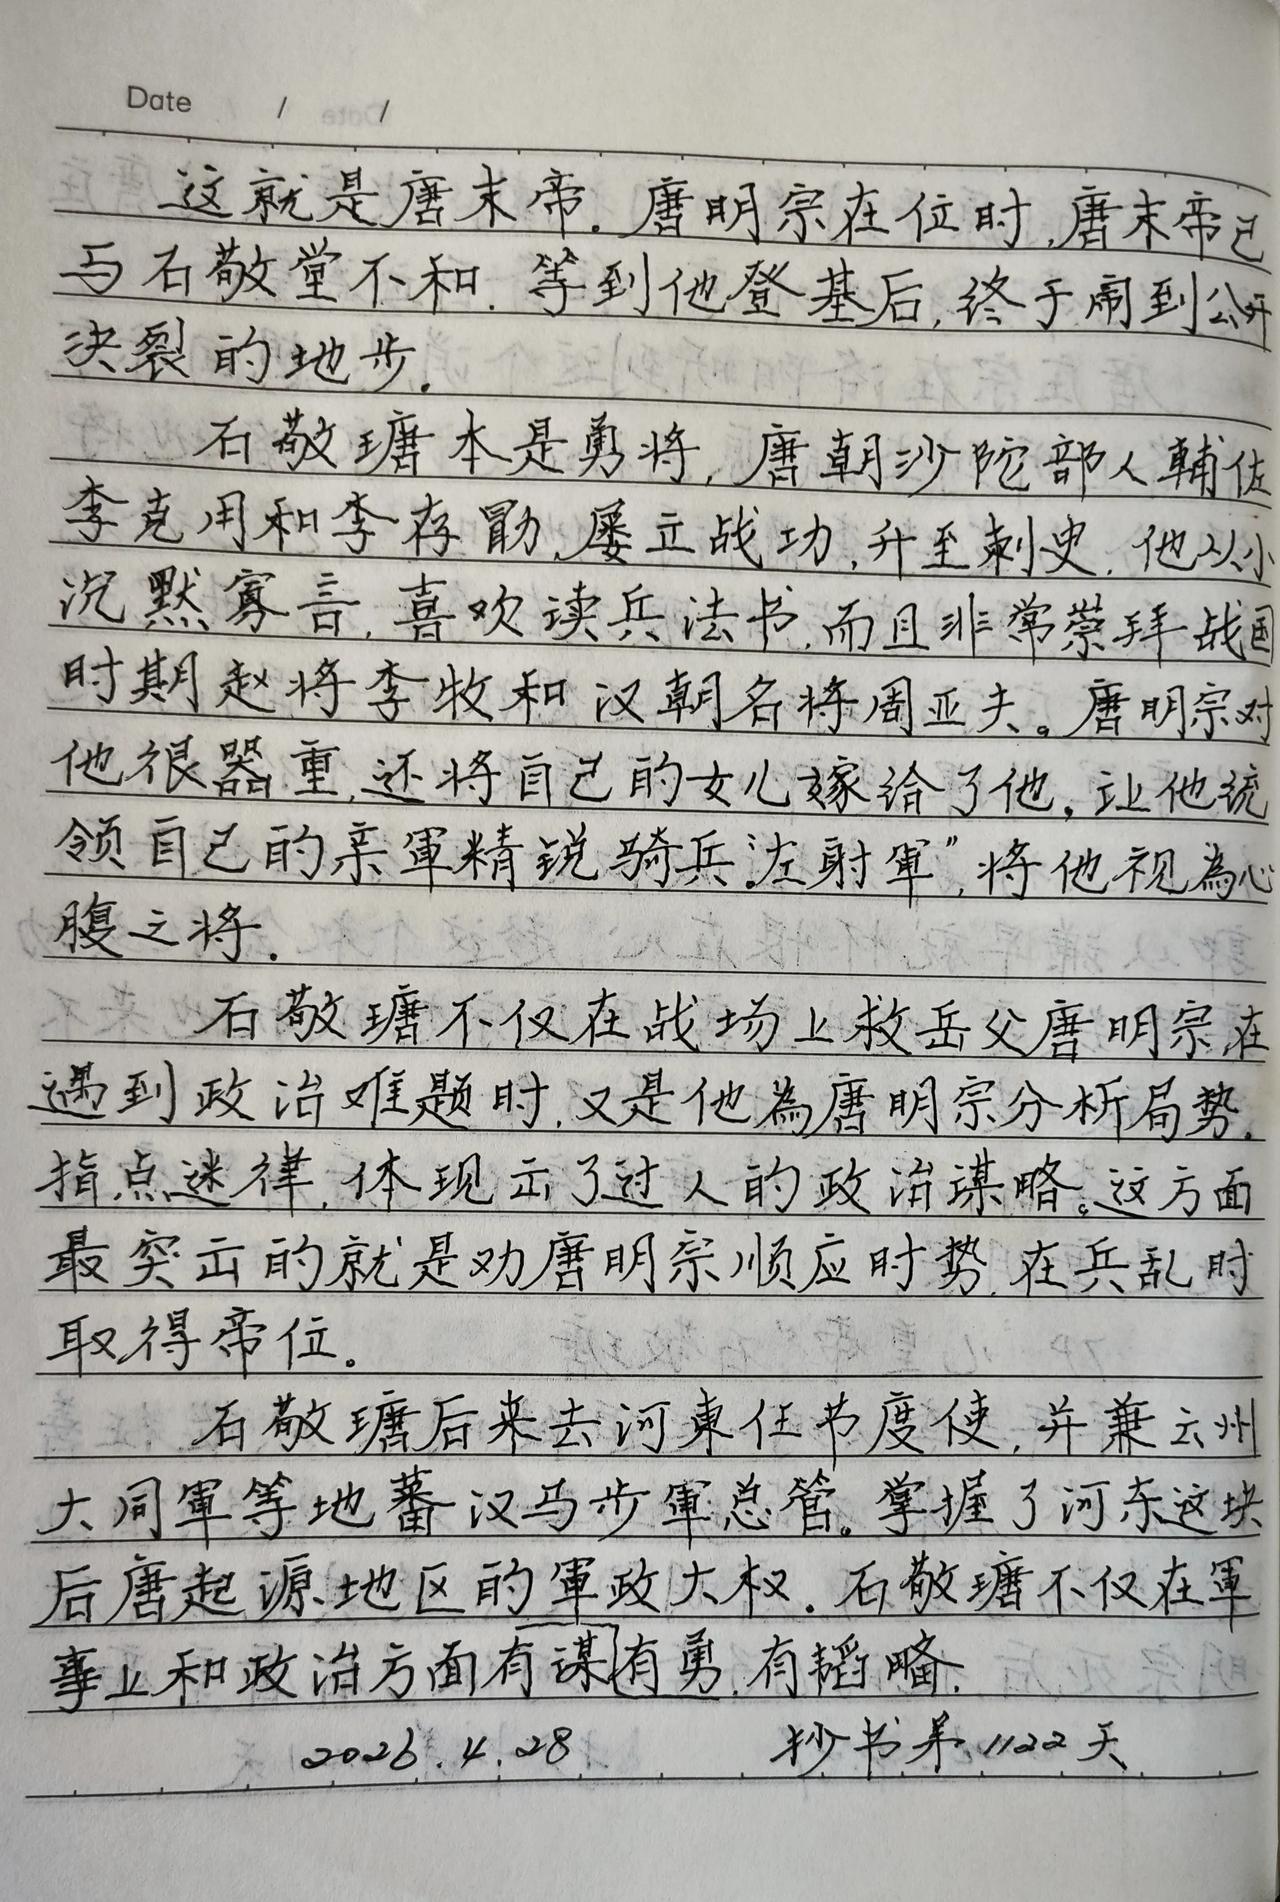 Date / /
这就是唐末帝.唐明宗在位时,唐末帝已
与石敬堂不和.等到他登基后,终于闹到公开
决裂的地步.
石敬瑭本是勇将,唐朝沙陀部人輔佐
李克用和李存勖,屡立战功,升至刺史.他从小
沉默寡言,喜欢读兵法书,而且非常崇拜战国
时期赵将李牧和汉朝名将周亚夫。唐明宗对
他很器重,还将自己的女儿嫁给了他,让他统
领自己的亲軍精锐骑兵“左射軍”,将他视為心
腹之将.
石敬瑭不仅在战场上救岳父唐明宗,在
遇到政治难题时,又是他為唐明宗分析局势.
指点迷律,体现出了过人的政治谋略。这方面
最突出的就是劝唐明宗顺应时势,在兵乱时
取得帝位。
石敬瑭后来去河東任节度使,并兼云州
大同軍等地蕃汉马步軍总管。掌握了河东这块
后唐起源地区的軍政大权.石敬瑭不仅在軍
事上和政治方面有谋有勇,有韬略.
2026.4.28 抄书第1122天